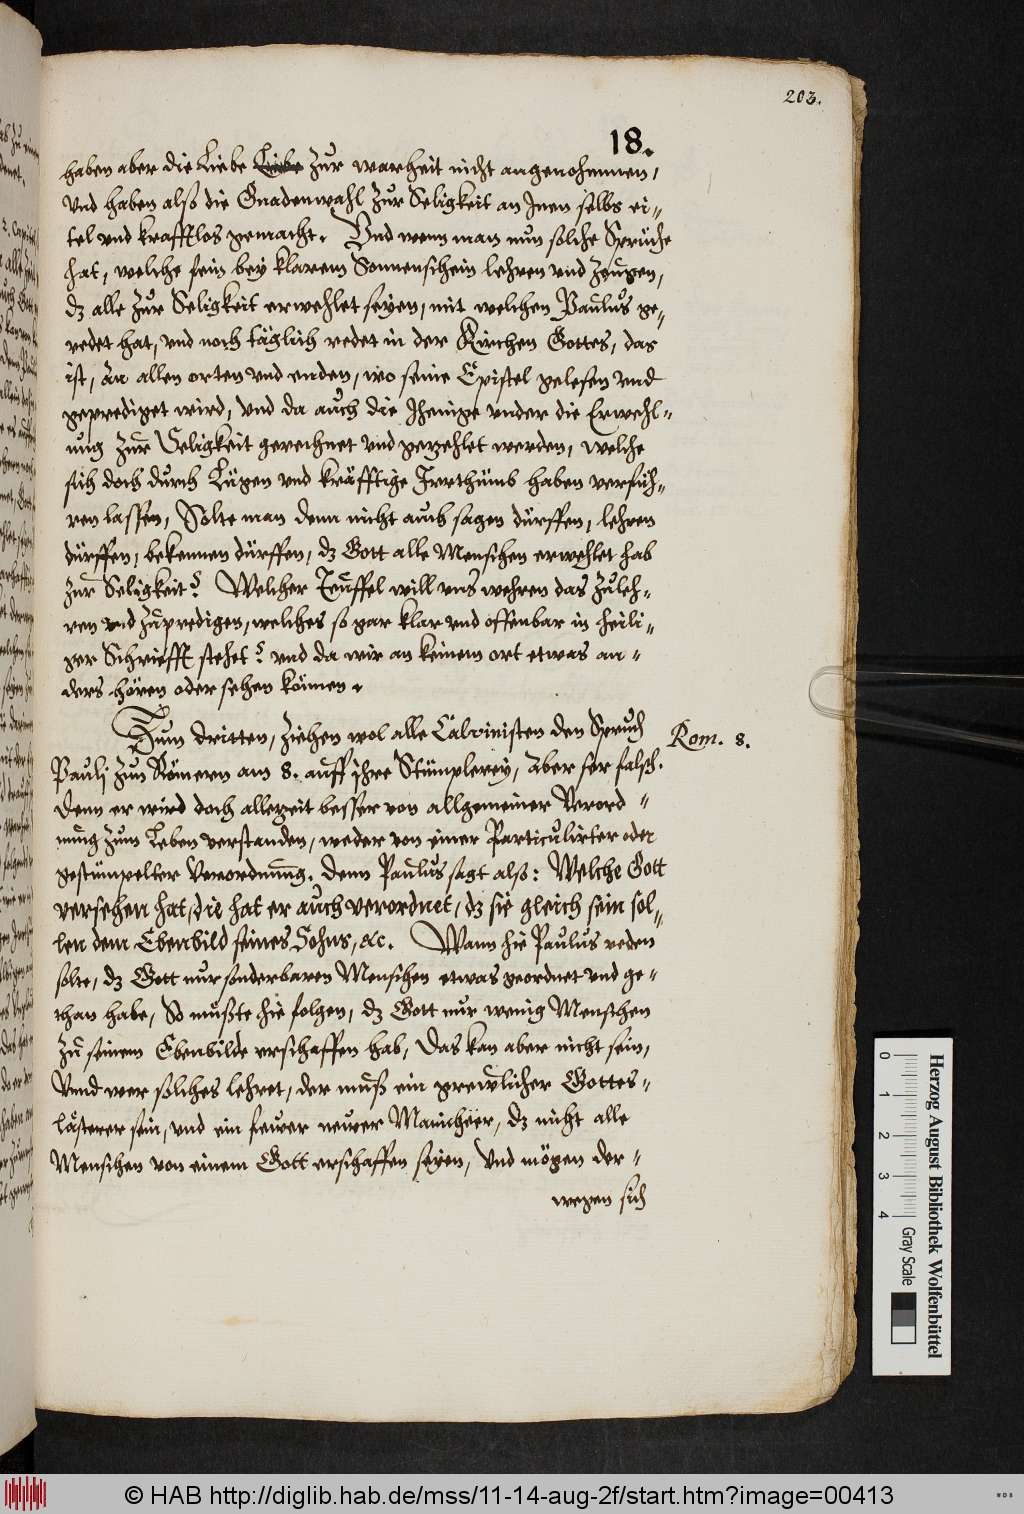 203.
18.
haben aber die Liebe Liebe zur warheit nicht angenohmmen,
Vnd haben also die Gnadenwahl zur Seligkeit an Inen selbs ei-
tel vnd krafftlos gemacht. Vnd wenn man nun solche Sprüche
hat, welche fein bey klarem Sonnenschein lehren vnd zeugen,
dz alle zur Seligkeit erwehlet seyen, mit welchen Paulus ge-
redet hat, vnd noch täglich redet in der Kirchen Gottes, das
ist, An allen orten vnd enden, wo seine Epistel gelesen vnd
geprediget wird, vnd da auch die Ihenige vnder die Erwehl-
ung zur Seligkeit gerechnet vnd gezehlet werden, welche
sich doch durch Lügen vnd kräfftige Irrthümb haben verfüh-
ren lassen, Solte man denn nicht auch sagen dürffen, lehren
dürffen, bekennen dürffen, dz Gott alle Menschen erwehlet hab
zur Seligkeit? Welcher Teuffel will vns wehren das zuleh-
ren vnd zupredigen, welches so gar klar vnd offenbar in heili-
ger Schriefft stehet? vnd da wir an keinem ort etwas an-
ders hören oder sehen können.
Zum dritten, ziehen wol alle Calvinisten den Spruch
Rom. 8.
Paulj zun Römern am 8. auff ihre Stümplerey, Aber ser falsch.
Denn er wird doch allezeit besser von allgemeiner Verord-
nung zum Leben verstanden, weder von einer Particulirter oder
gestümpelter Verordnung. Denn Paulus sagt also: Welche Gott
versehen hat, die hat er auch verordnet, dz sie gleich sein sol-
len dem Ebenbild seines Sohns, &c. Wann hie Paulus reden
solte, dz Gott nur sonderbaren Menschen etwas geordnet vnd ge-
than habe, So mußte hie folgen, dz Gott nur wenig Menschen
zu seinem Ebenbilde erschaffen hab, Das kan aber nicht sein,
Vnnd wer solches lehret, der muß ein grewlicher Gottes-
lästerer sein, vnd ein newer Manicheer, dz nicht alle
Menschen von einem Gott erschaffen seyen, Vnd mögen der-
wegen sich
Herzog August Bibliothek Wolfenbüttel
0 1 2 3 4 Gray Scale
© HAB http://diglib.hab.de/mss/11-14-aug-2f/start.htm?image=00413